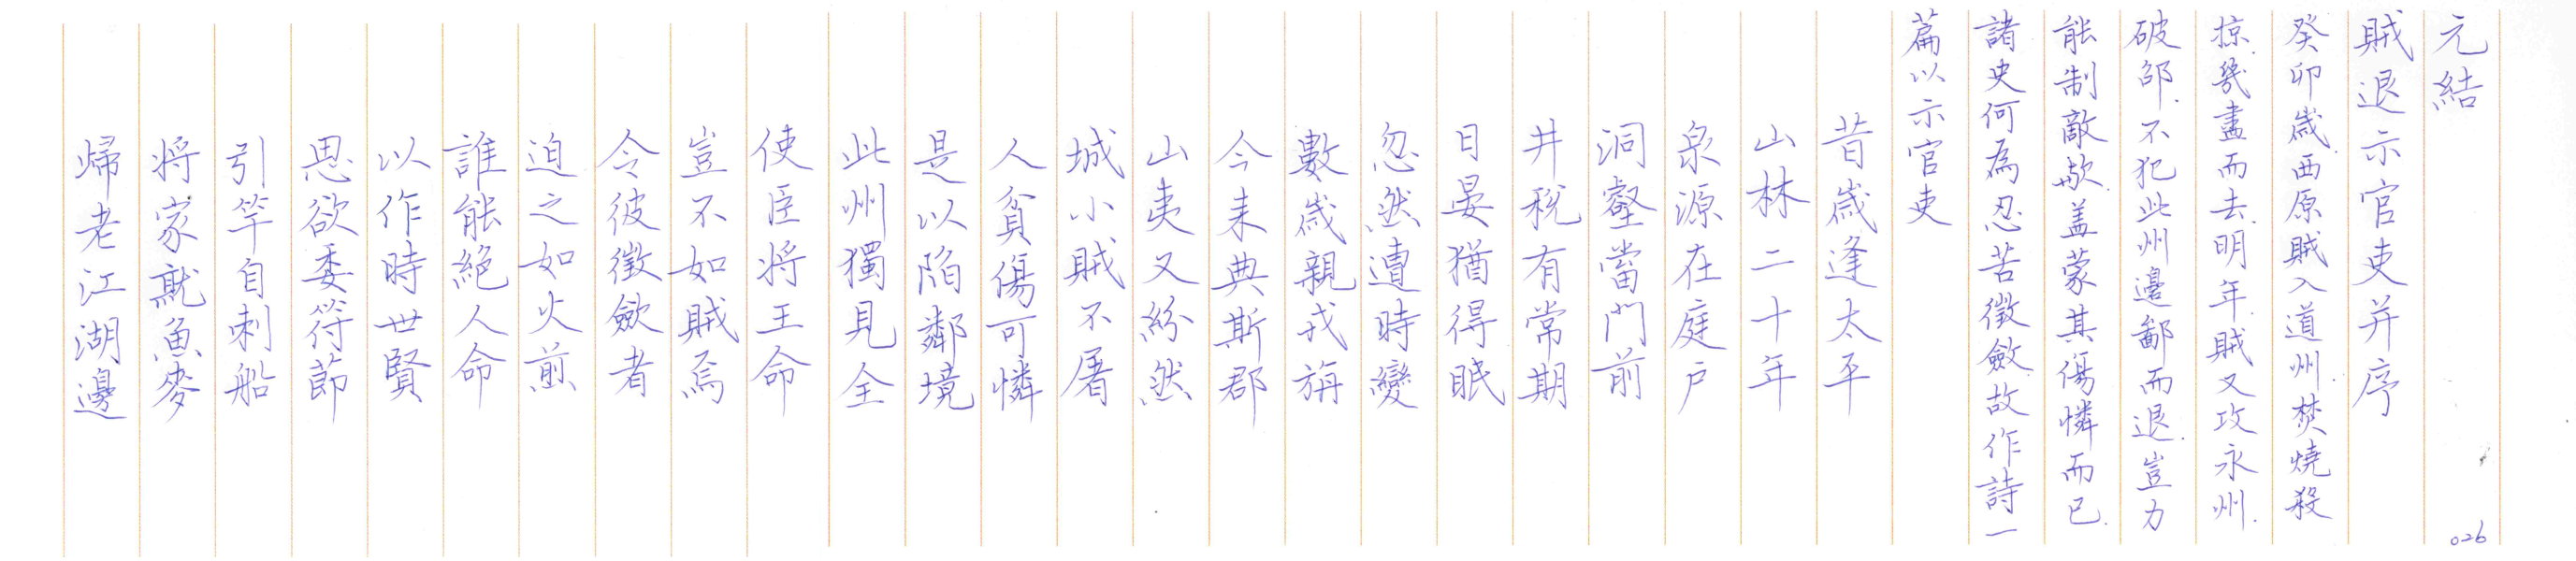 元結
賊退示官吏并序
癸卯歲.西原賊入道州.焚燒殺
掠.幾盡而去.明年.賊又攻永州.
破邵.不犯此州邊鄙而退.豈力
能制敵歟.蓋蒙其傷憐而已.
諸史何為忍苦徵斂故作詩一
篇以示官吏
昔歲逢太平
山林二十年
泉源在庭戶
洞壑當門前
井稅有常期
日晏猶得眠
忽然遭時變
數歲親戎旃
今來典斯郡
山夷又紛然
城小賊不屠
人貧傷可憐
是以陷鄰境
此州獨見全
使臣將王命
豈不如賊焉
令彼徵斂者
迫之如火煎
誰能絕人命
以作時世賢
思欲委符節
引竿自刺船
將家就魚麥
歸老江湖邊
026